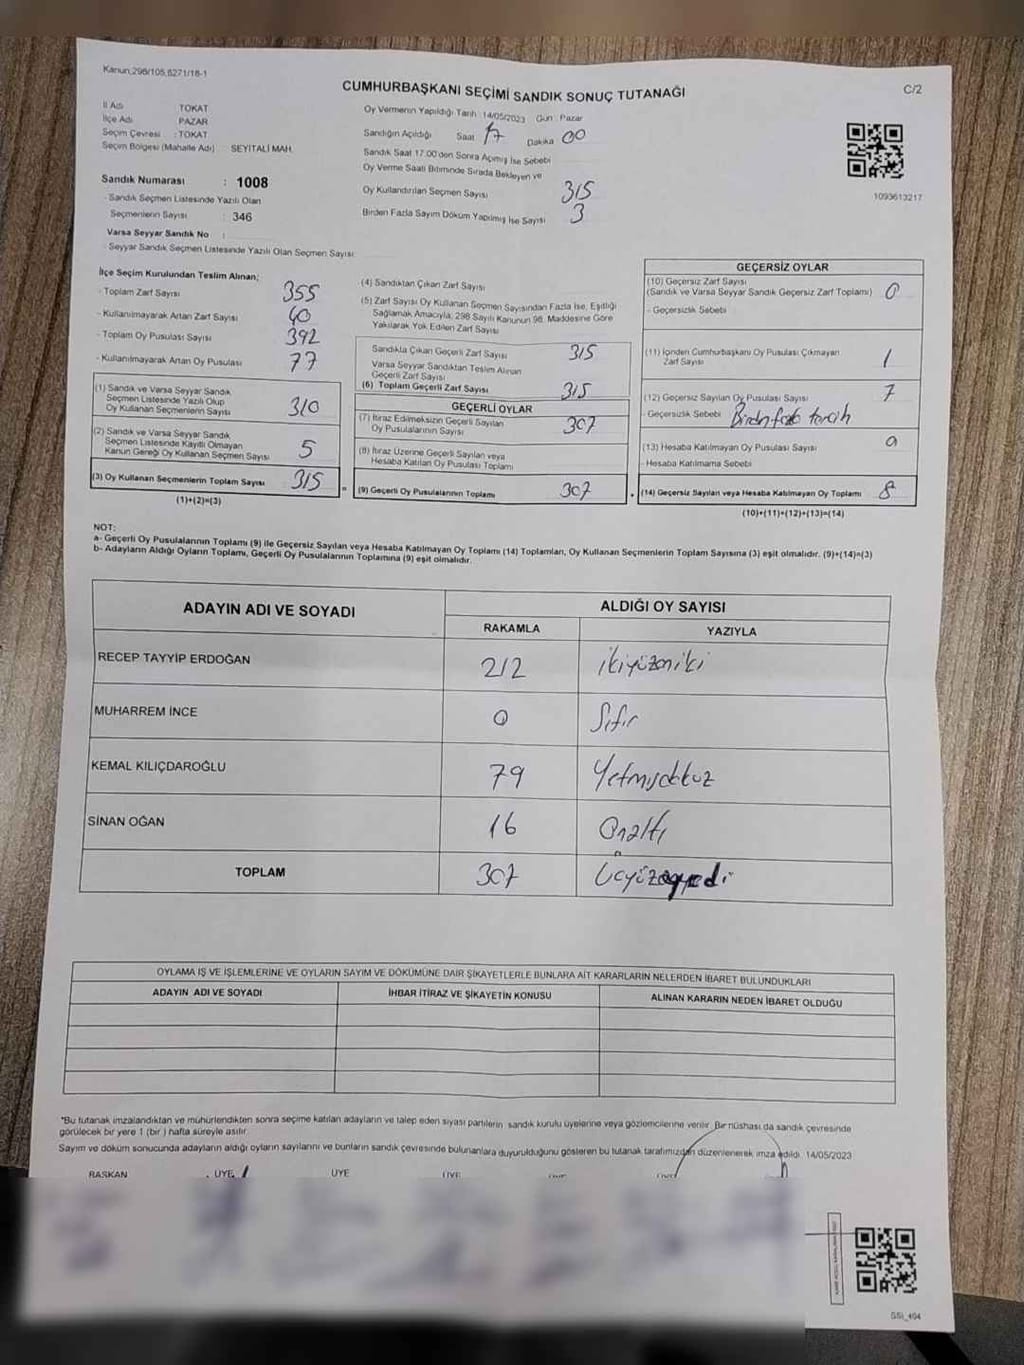 Kanun,298/105,6271/18-1
CUMHURBAŞKANI SEÇİMİ SANDIK SONUÇ TUTANAĞI
C/2
İl Adı TOKAT
İlçe Adı PAZAR
Seçim Çevresi : TOKAT
Seçim Bölgesi (Mahalle Adı) SEYİTALİ MAH.
Sandık Numarası : 1008
Sandık Seçmen Listesinde Yazılı Olan
Seçmenlerin Sayısı : 346
Varsa Seyyar Sandık No :
Seyyar Sandık Seçmen Listesinde Yazılı Olan Seçmen Sayısı:
Oy Vermenin Yapıldığı Tarih: 14/05/2023 Gün : Pazar
Sandığın Açıldığı Saat 17 Dakika 00
Sandık Saat 17:00'den Sonra Açılmış İse Sebebi
Oy Verme Saati Bitiminde Sırada Bekleyen ve
Oy Kullandırılan Seçmen Sayısı 315
Birden Fazla Sayım Döküm Yapılmış İse Sayısı 3
1093613217
İlçe Seçim Kurulundan Teslim Alınan;
- Toplam Zarf Sayısı 355
- Kullanılmayarak Artan Zarf Sayısı 40
- Toplam Oy Pusulası Sayısı 392
- Kullanılmayarak Artan Oy Pusulası 77
(1) Sandık ve Varsa Seyyar Sandık
Seçmen Listesinde Yazılı Olup
Oy Kullanan Seçmenlerin Sayısı 310
(2) Sandık ve Varsa Seyyar Sandık
Seçmen Listesinde Kayıtlı Olmayan
Kanun Gereği Oy Kullanan Seçmen Sayısı 5
(3) Oy Kullanan Seçmenlerin Toplam Sayısı 315
(1)+(2)=(3)
(4) Sandıktan Çıkan Zarf Sayısı
(5) Zarf Sayısı Oy Kullanan Seçmen Sayısından Fazla İse, Eşitliği
Sağlamak Amacıyla; 298 Sayılı Kanunun 98. Maddesine Göre
Yakılarak Yok Edilen Zarf Sayısı
Sandıkta Çıkan Geçerli Zarf Sayısı 315
Varsa Seyyar Sandıktan Teslim Alınan
Geçerli Zarf Sayısı
(6) Toplam Geçerli Zarf Sayısı 315
GEÇERLİ OYLAR
(7) İtiraz Edilmeksizin Geçerli Sayılan
Oy Pusulalarının Sayısı 307
(8) İtiraz Üzerine Geçerli Sayılan veya
Hesaba Katılan Oy Pusulası Toplamı
= (9) Geçerli Oy Pusulalarının Toplamı 307
GEÇERSİZ OYLAR
(10) Geçersiz Zarf Sayısı
(Sandık ve Varsa Seyyar Sandık Geçersiz Zarf Toplamı) 0
- Geçersizlik Sebebi
(11) İçinden Cumhurbaşkanı Oy Pusulası Çıkmayan
Zarf Sayısı 1
(12) Geçersiz Sayılan Oy Pusulası Sayısı 7
- Geçersizlik Sebebi Birden fazla tercih
(13) Hesaba Katılmayan Oy Pusulası Sayısı 0
- Hesaba Katılmama Sebebi
+ (14) Geçersiz Sayılan veya Hesaba Katılmayan Oy Toplamı 8
(10)+(11)+(12)+(13)=(14)
NOT:
a- Geçerli Oy Pusulalarının Toplamı (9) ile Geçersiz Sayılan veya Hesaba Katılmayan Oy Toplamı (14) Toplamları, Oy Kullanan Seçmenlerin Toplam Sayısına (3) eşit olmalıdır. (9)+(14)=(3)
b- Adayların Aldığı Oyların Toplamı, Geçerli Oy Pusulalarının Toplamına (9) eşit olmalıdır.
ADAYIN ADI VE SOYADI
ALDIĞI OY SAYISI
RAKAMLA YAZIYLA
RECEP TAYYİP ERDOĞAN 212 ikiyüzoniki
MUHARREM İNCE 0 Sıfır
KEMAL KILIÇDAROĞLU 79 Yetmişdokuz
SİNAN OĞAN 16 Onaltı
TOPLAM 307 Üçyüzyedi
OYLAMA İŞ VE İŞLEMLERİNE VE OYLARIN SAYIM VE DÖKÜMÜNE DAİR ŞİKAYETLERLE BUNLARA AİT KARARLARIN NELERDEN İBARET BULUNDUKLARI
ADAYIN ADI VE SOYADI İHBAR İTİRAZ VE ŞİKAYETİN KONUSU ALINAN KARARIN NEDEN İBARET OLDUĞU
*Bu tutanak imzalandıktan ve mühürlendikten sonra seçime katılan adayların ve talep eden siyasi partilerin sandık kurulu üyelerine veya gözlemcilerine verilir. Bir nüshası da sandık çevresinde
görülecek bir yere 1 (bir) hafta süreyle asılır.
Sayım ve döküm sonucunda adayların aldığı oyların sayılarını ve bunların sandık çevresinde bulunanlara duyurulduğunu gösteren bu tutanak tarafımızdan düzenlenerek imza edildi. 14/05/2023
BAŞKAN ÜYE ÜYE ÜYE
SSI_404